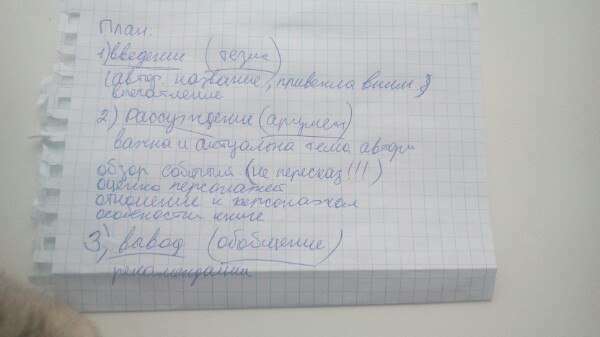 План:
1) введение (тезис)
(автор, название, привекла вним.?)
впечатление
2) Рассуждение (аргумент)
важна и актуальна тема автора
обзор события (не пересказ!!!)
оценка персонажей
отношение к персонажам
особености книге
3) вывод (обобщение)
рекомендации